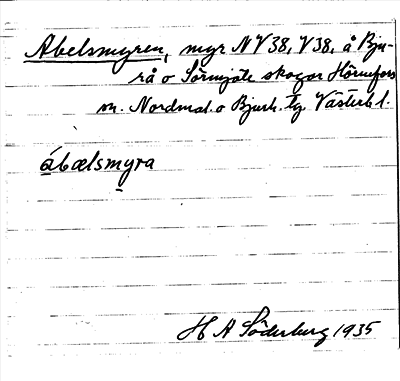 Abelsmyren, myr NV38, V38, å Bju-
rå o Sörmjöle skogar Hörnefors
sn. Nordmal. o Bjurh. tg. Västerb l.
ábælsmyra
H A Söderberg 1935